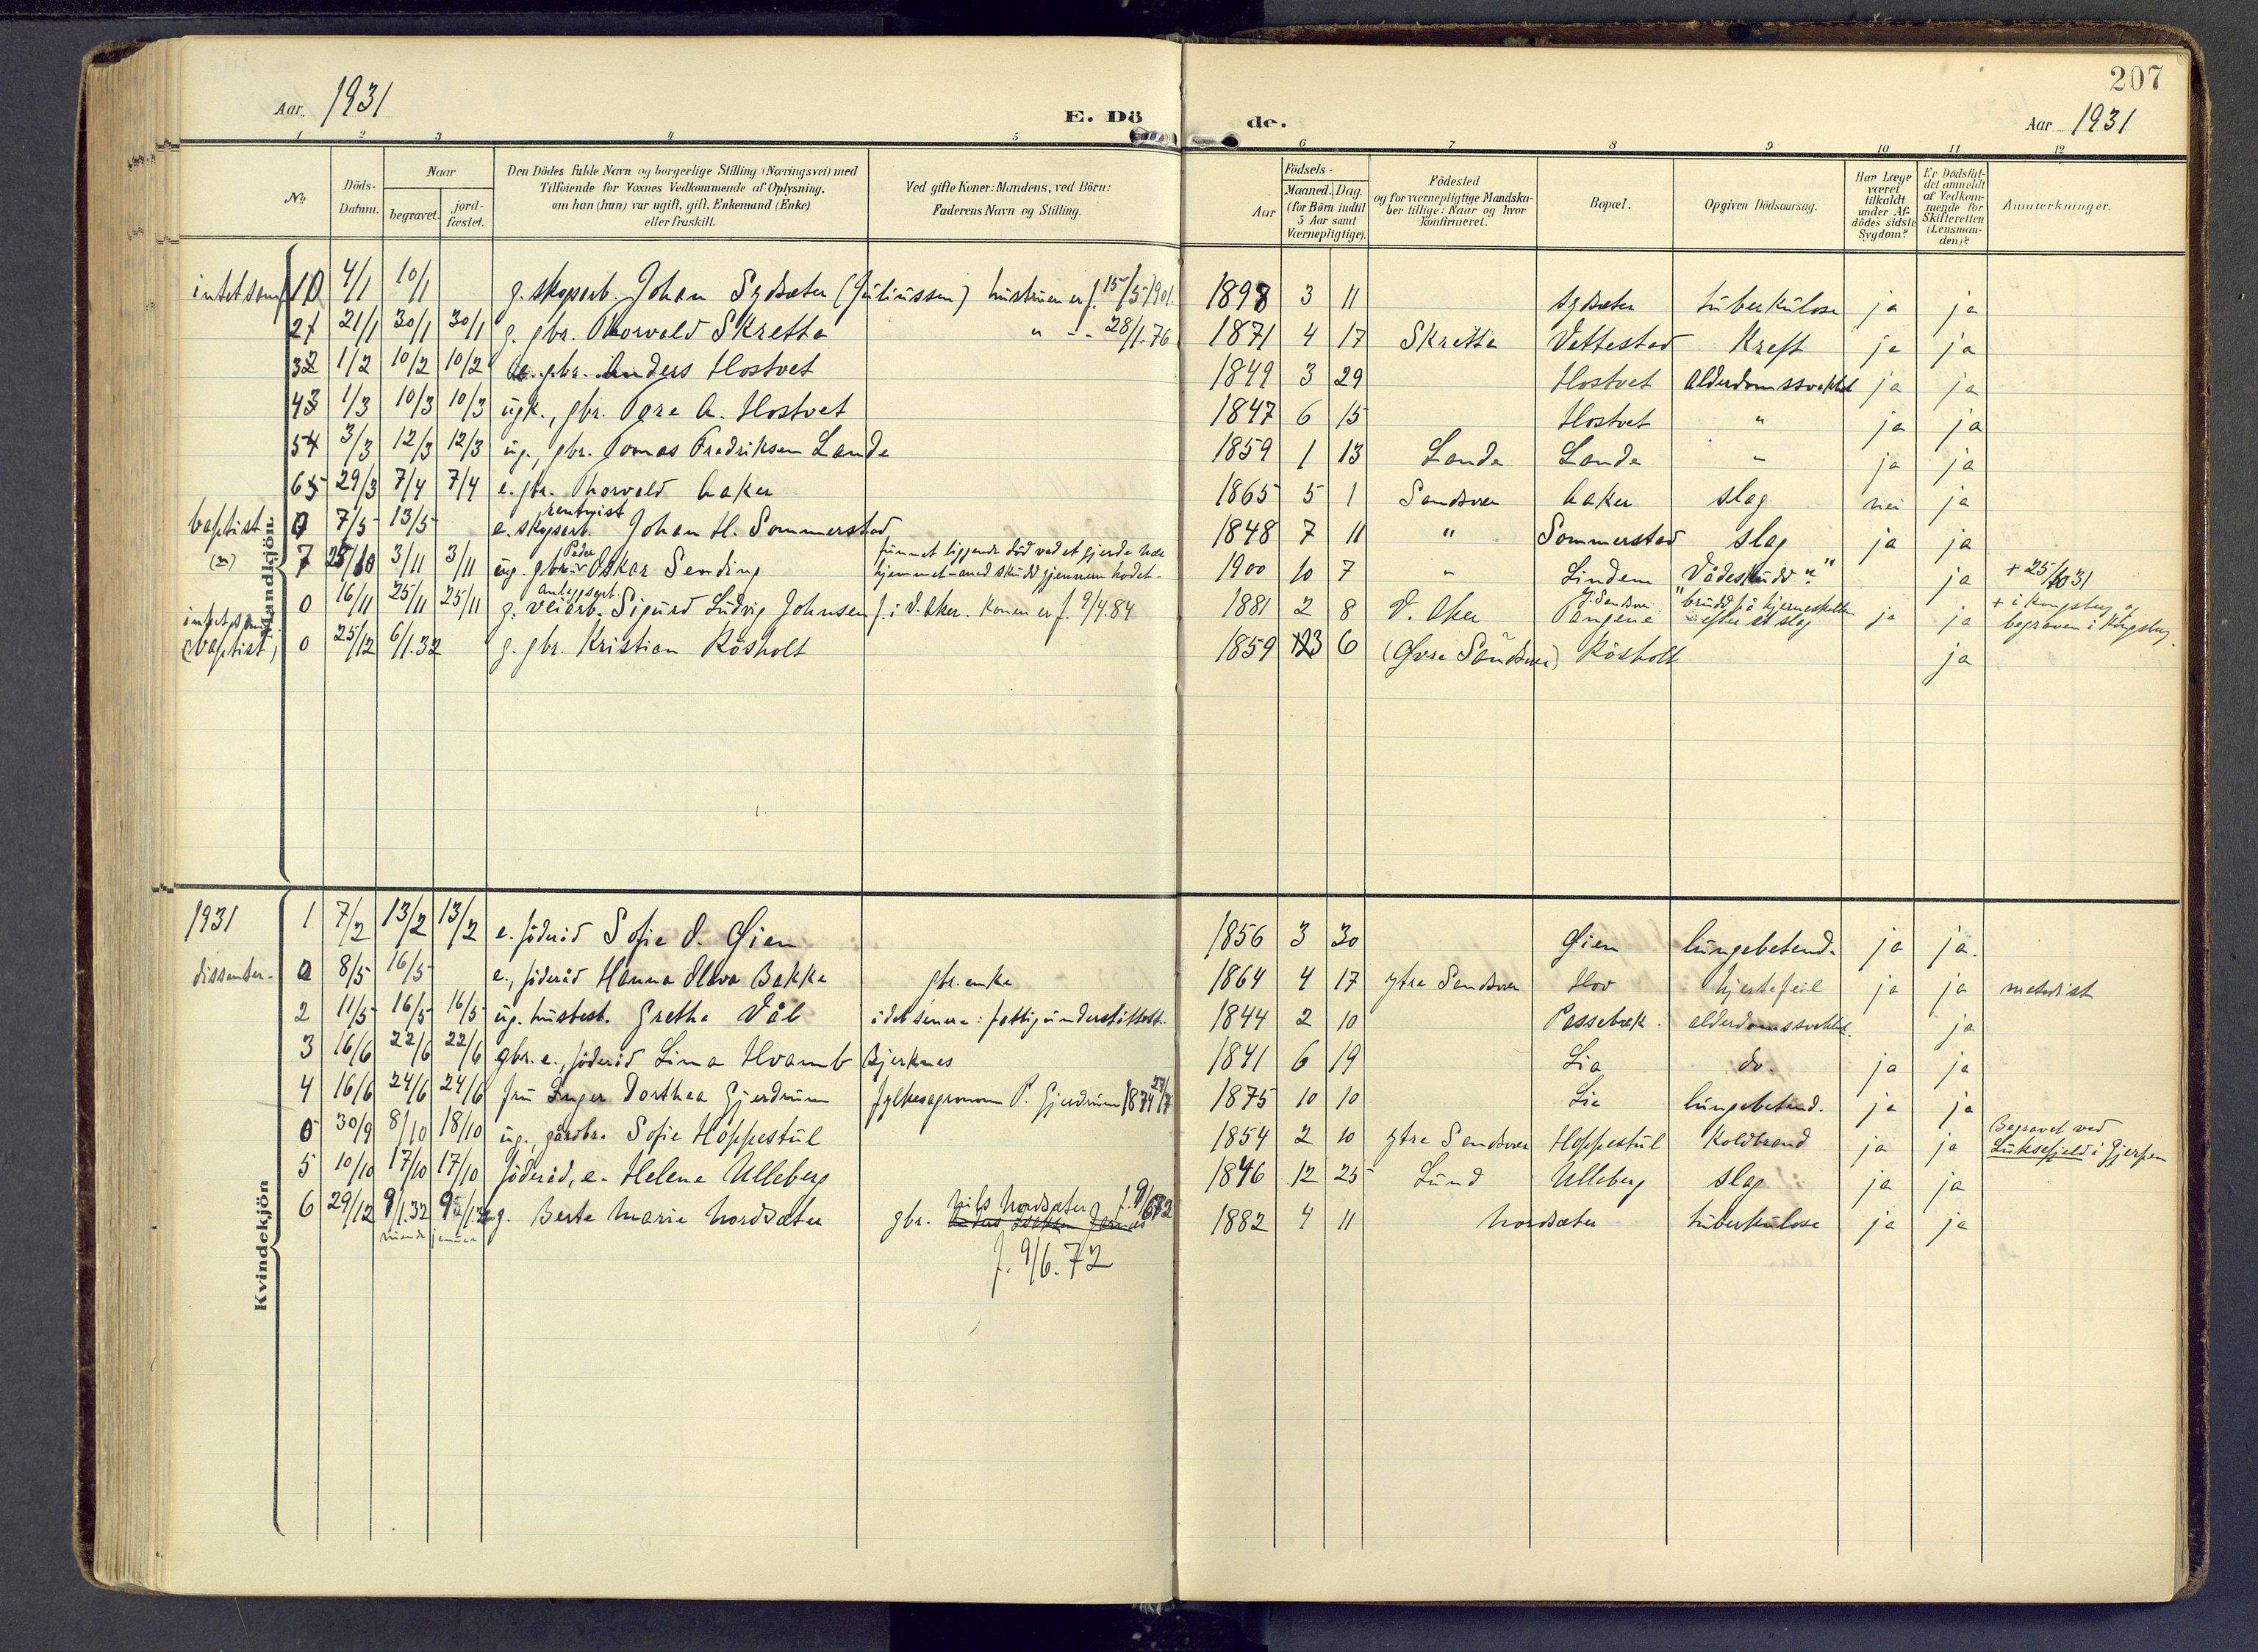 207
Aar 1931 E. Dö de. Aar 1931
1 2 3 4 5 6 7 8 9 10 11 12
No. Döds-Datum. Naar begravet. jord-fæstet. Den Dödes fulde Navn og borgerlige Stilling (Næringsvei) med Tilföiende for Voxnes Vedkommende af Oplysning, om han (hun) var ugift, gift, Enkemand (Enke) eller fraskilt. Ved gifte Koner: Mandens, ved Börn: Faderens Navn og Stilling. Aar Födsels- Maaned. Dag. (for Börn indtil 5 Aar samt Værnepligtige). Födested og for værnepligtige Mandskaber tillige: Naar og hvor konfirmeret. Bopæl. Opgiven Dödsaarsag. Har Læge været tilkaldt under Afdödes sidste Sygdom? Er Dödsfaldet anmeldt af Vedkommende for Skifteretten (Lensmanden)? Anmærkninger.
Mandkjön
intetsamf 0 4/1 10/1 g. skogsarb. Johan Sydsæter (Juliussen) hustruen er f. 15/5 1901. 1898 3 11 sydsæter tuberkulose ja ja
1 21/1 30/1 30/1 g. gbr. Thorvald Skretta " - - 28/1.76 1871 4 17 Skretta Vettestad Kreft ja ja
2 1/2 10/2 10/2 e. gbr. Anders Hostvet 1849 3 29 Hostvet alderdomssvakhet ja ja
3 1/3 10/3 10/3 ugk., gbr. Tore A. Hostvet 1847 6 15 Hostvet " ja ja
4 3/3 12/3 12/3 ug., gbr. Tomas Fredriksen Lande 1859 1 13 Lande Lande " ja ja
5 29/3 7/4 7/4 e. gbr. Thorvald Aaker 1865 5 1 Sandsver Aaker slag nei ja
baptist 0 7/5 13/5 e. skogsarb. rentnist Johan H. Sommerstad 1848 7 11 " Sommerstad slag ja ja
7 25/10 3/11 3/11 ug. gbr. Peder Oskar Sending funnet liggende död ved et gjerde nær hjemmet - med skudd gjennem hodet - 1900 10 7 " Lindem Vådeskudd "?" ja + 25/10 31
0 16/11 25/11 25/11 g. veiarb. Anleggsarb. Sigurd Ludvig Johnsen f. i V. Aker. Konen er f. 9/4.84 1881 2 8 V. Aker Tangene "brudd på hjerneskallen efter et slag ja ja + i Kongsberg og begraven i Kongsberg.
(baptist) 0 25/12 6/1.32 g. gbr. Kristian Råsholt 1859 6 (Övre Sandsver) Råsholt ja
Kvindekjön
1931 1 7/2 13/2 13/2 e. föderåd Sofie O. Gien 1856 3 30 Gien lungebetend. ja ja.
dissenter- 0 8/5 16/5 e., föderåd Hanna Olava Bakke gbr. enke 1864 4 17 ytre Sandsver Hov hjertefeil ja ja metodist
2 11/5 16/5 16/5 ug. husbest. Grethe Våb i det senere: fattigunderstöttet. 1844 2 10 Passebæk alderdomssvakhet. ja
3 16/6 22/6 22/6 gbr. e., föderåd Lina Hvamb Bjerknes 1841 6 19 Lia do. ja ja
4 16/6 24/6 24/6 fru Inger Dorthea Gjerdrum fylkesagronom P. Gjerdrum 1875 10 10 Lia lungebetend. ja ja
0 30/9 8/10 18/10 ug., gårdbr. Sofie Hoppestul 1854 2 10 ytre Sandsver Hoppestul Koldbrand ja ja Begravet ved Luksefjeld i Gjerpen
5 10/10 17/10 17/10 föderåd, e. Helene Ulleberg 1846 12 25 Lund Ulleberg slag ja ja
6 29/12 9/1.32 9/1.32 g. Berte Marie Nordsæter gbr. Nils Nordsæter 1882 4 11 Nordsæter tuberkulose ja ja
niende januar
f. 9/6.72